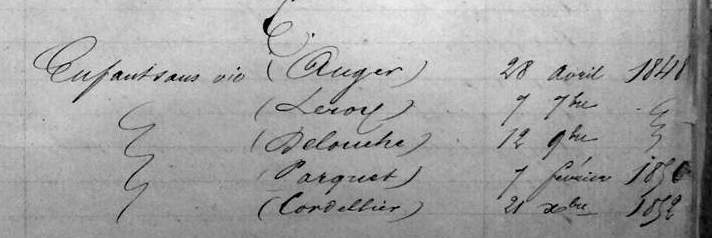 E.
Enfant sans vie (Auger) 28 avril 1848
" (Leroy) 7 7bre "
" (Delouche) 12 9bre "
" (Parquet) 7 février 1850
" (Cordellier) 21 xbre 1852